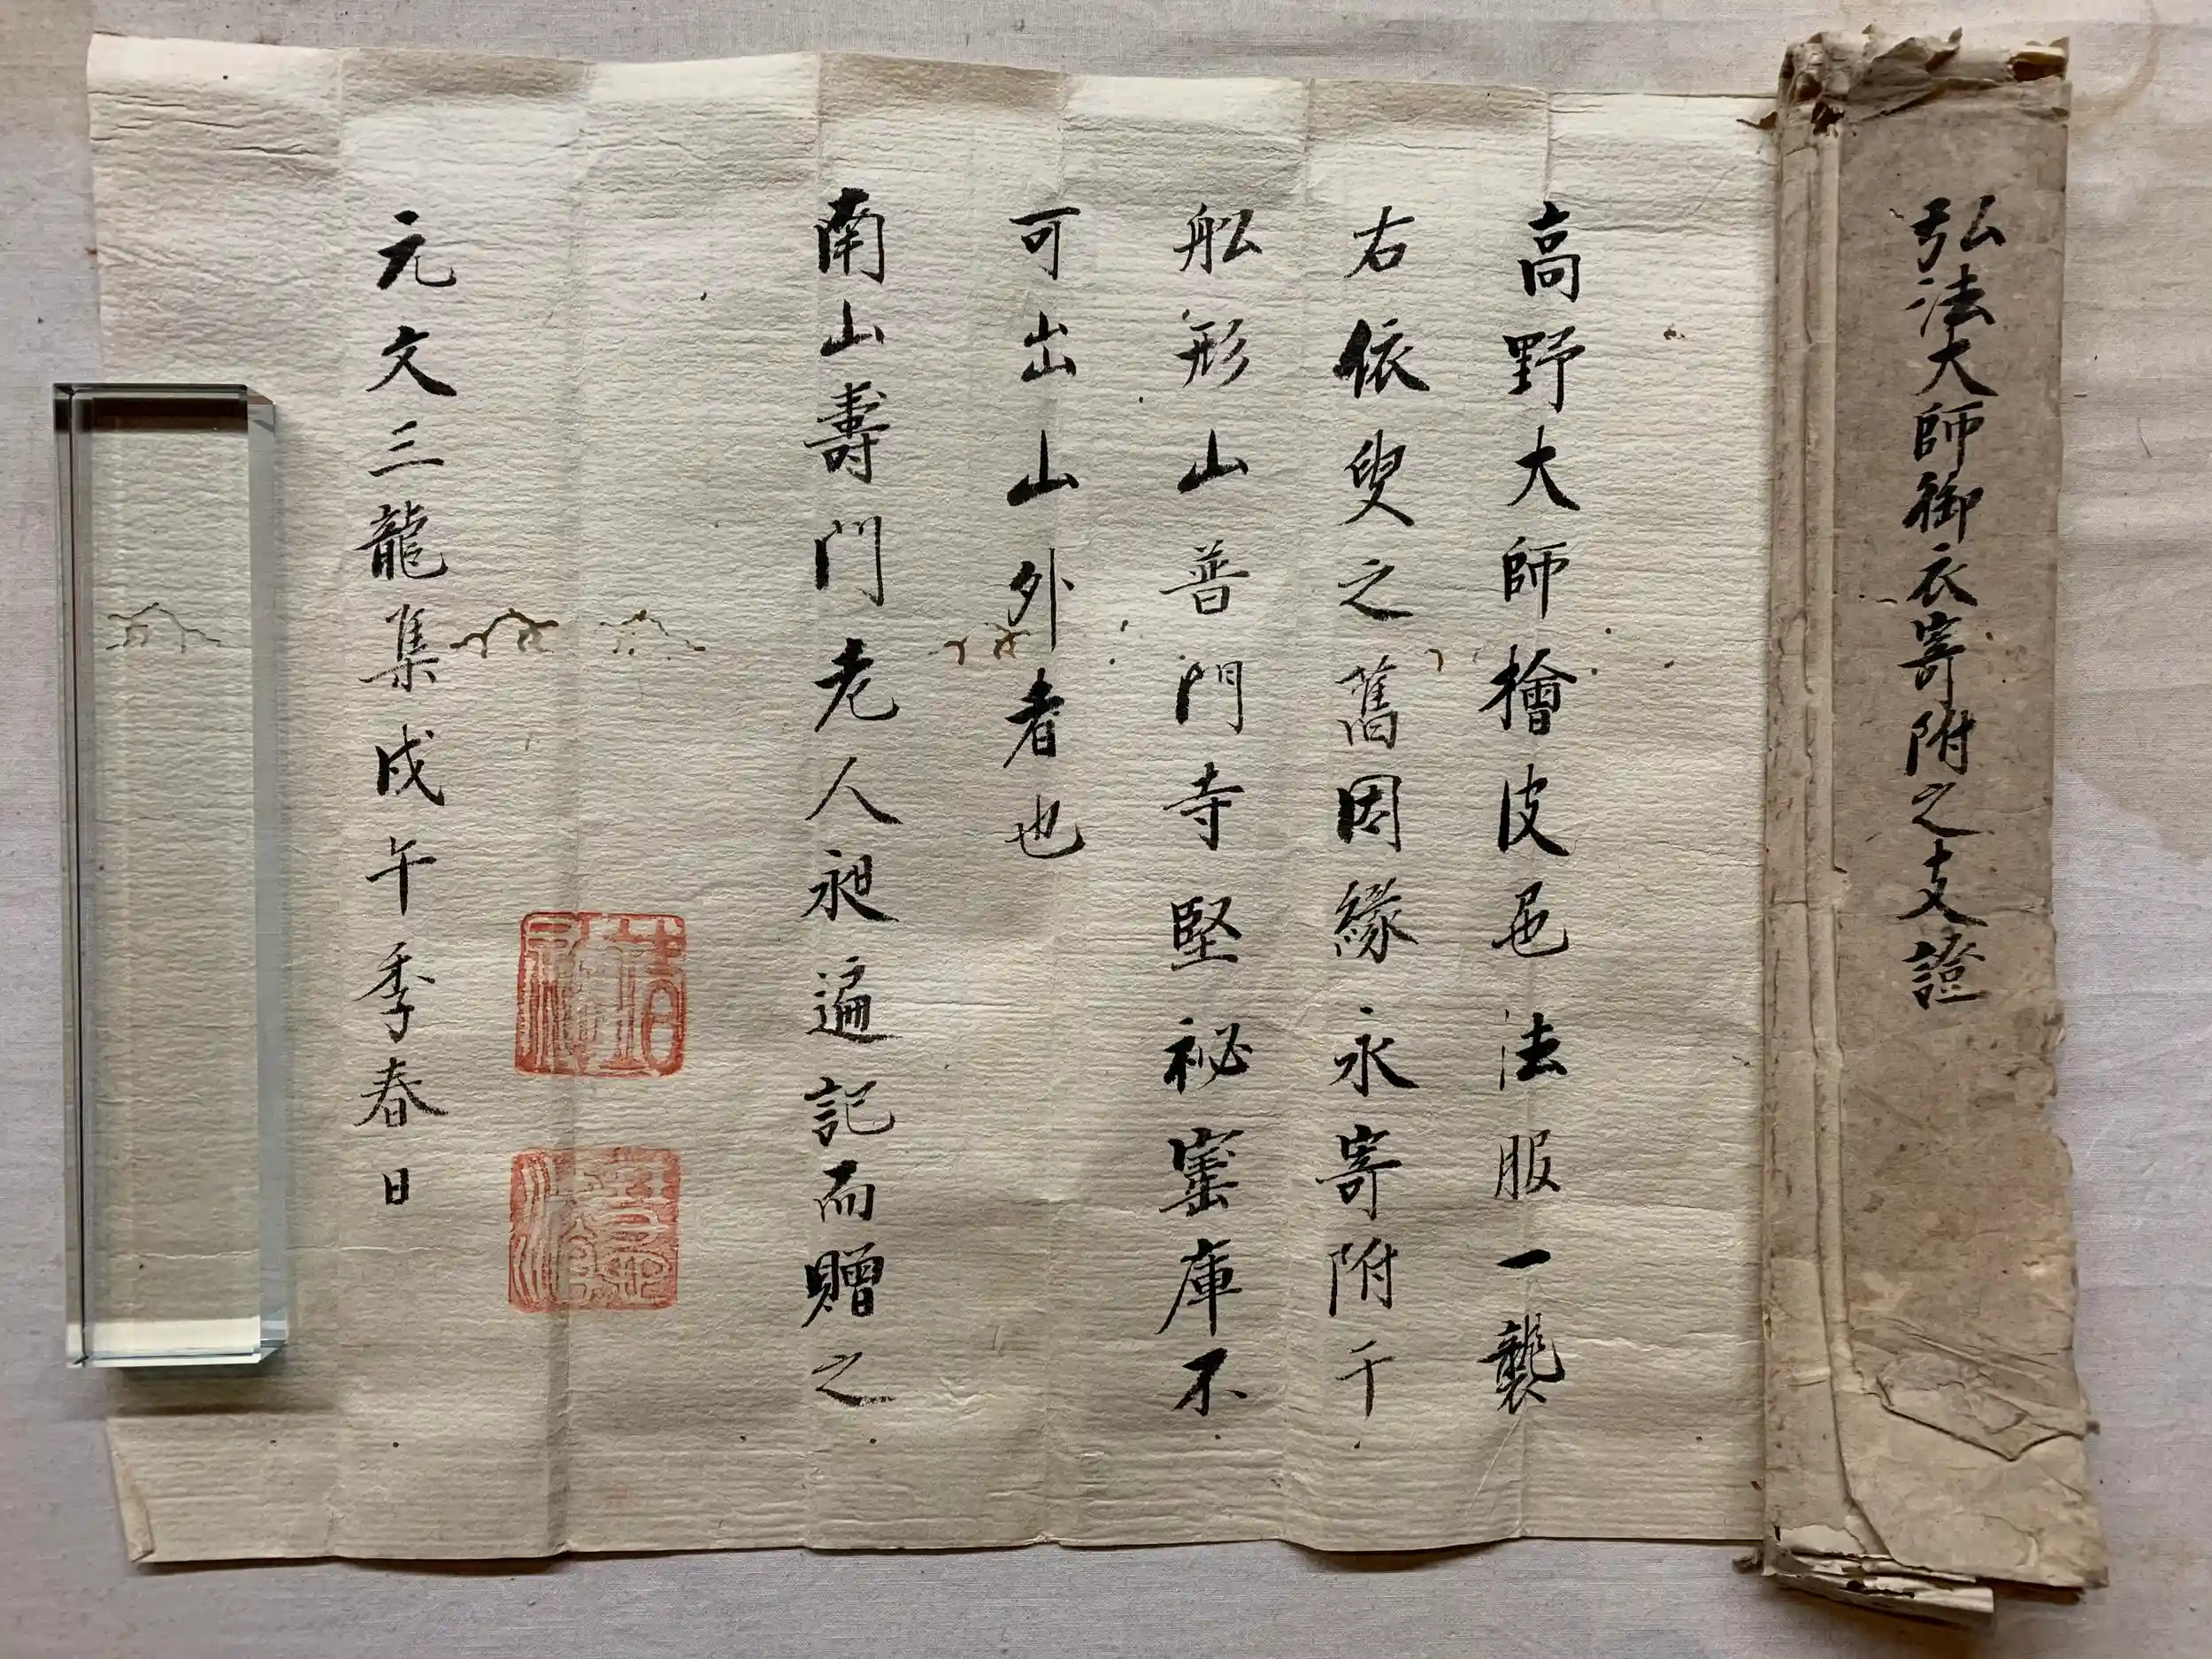 弘法大師御衣寄附之支證
高野大師檜皮色法服一襲
右依叟之舊因緣永寄附于
舩形山普門寺堅祕室庫不
可出山外者也
南山壽門老人昶遍記而贈之
元文三龍集戊午季春日